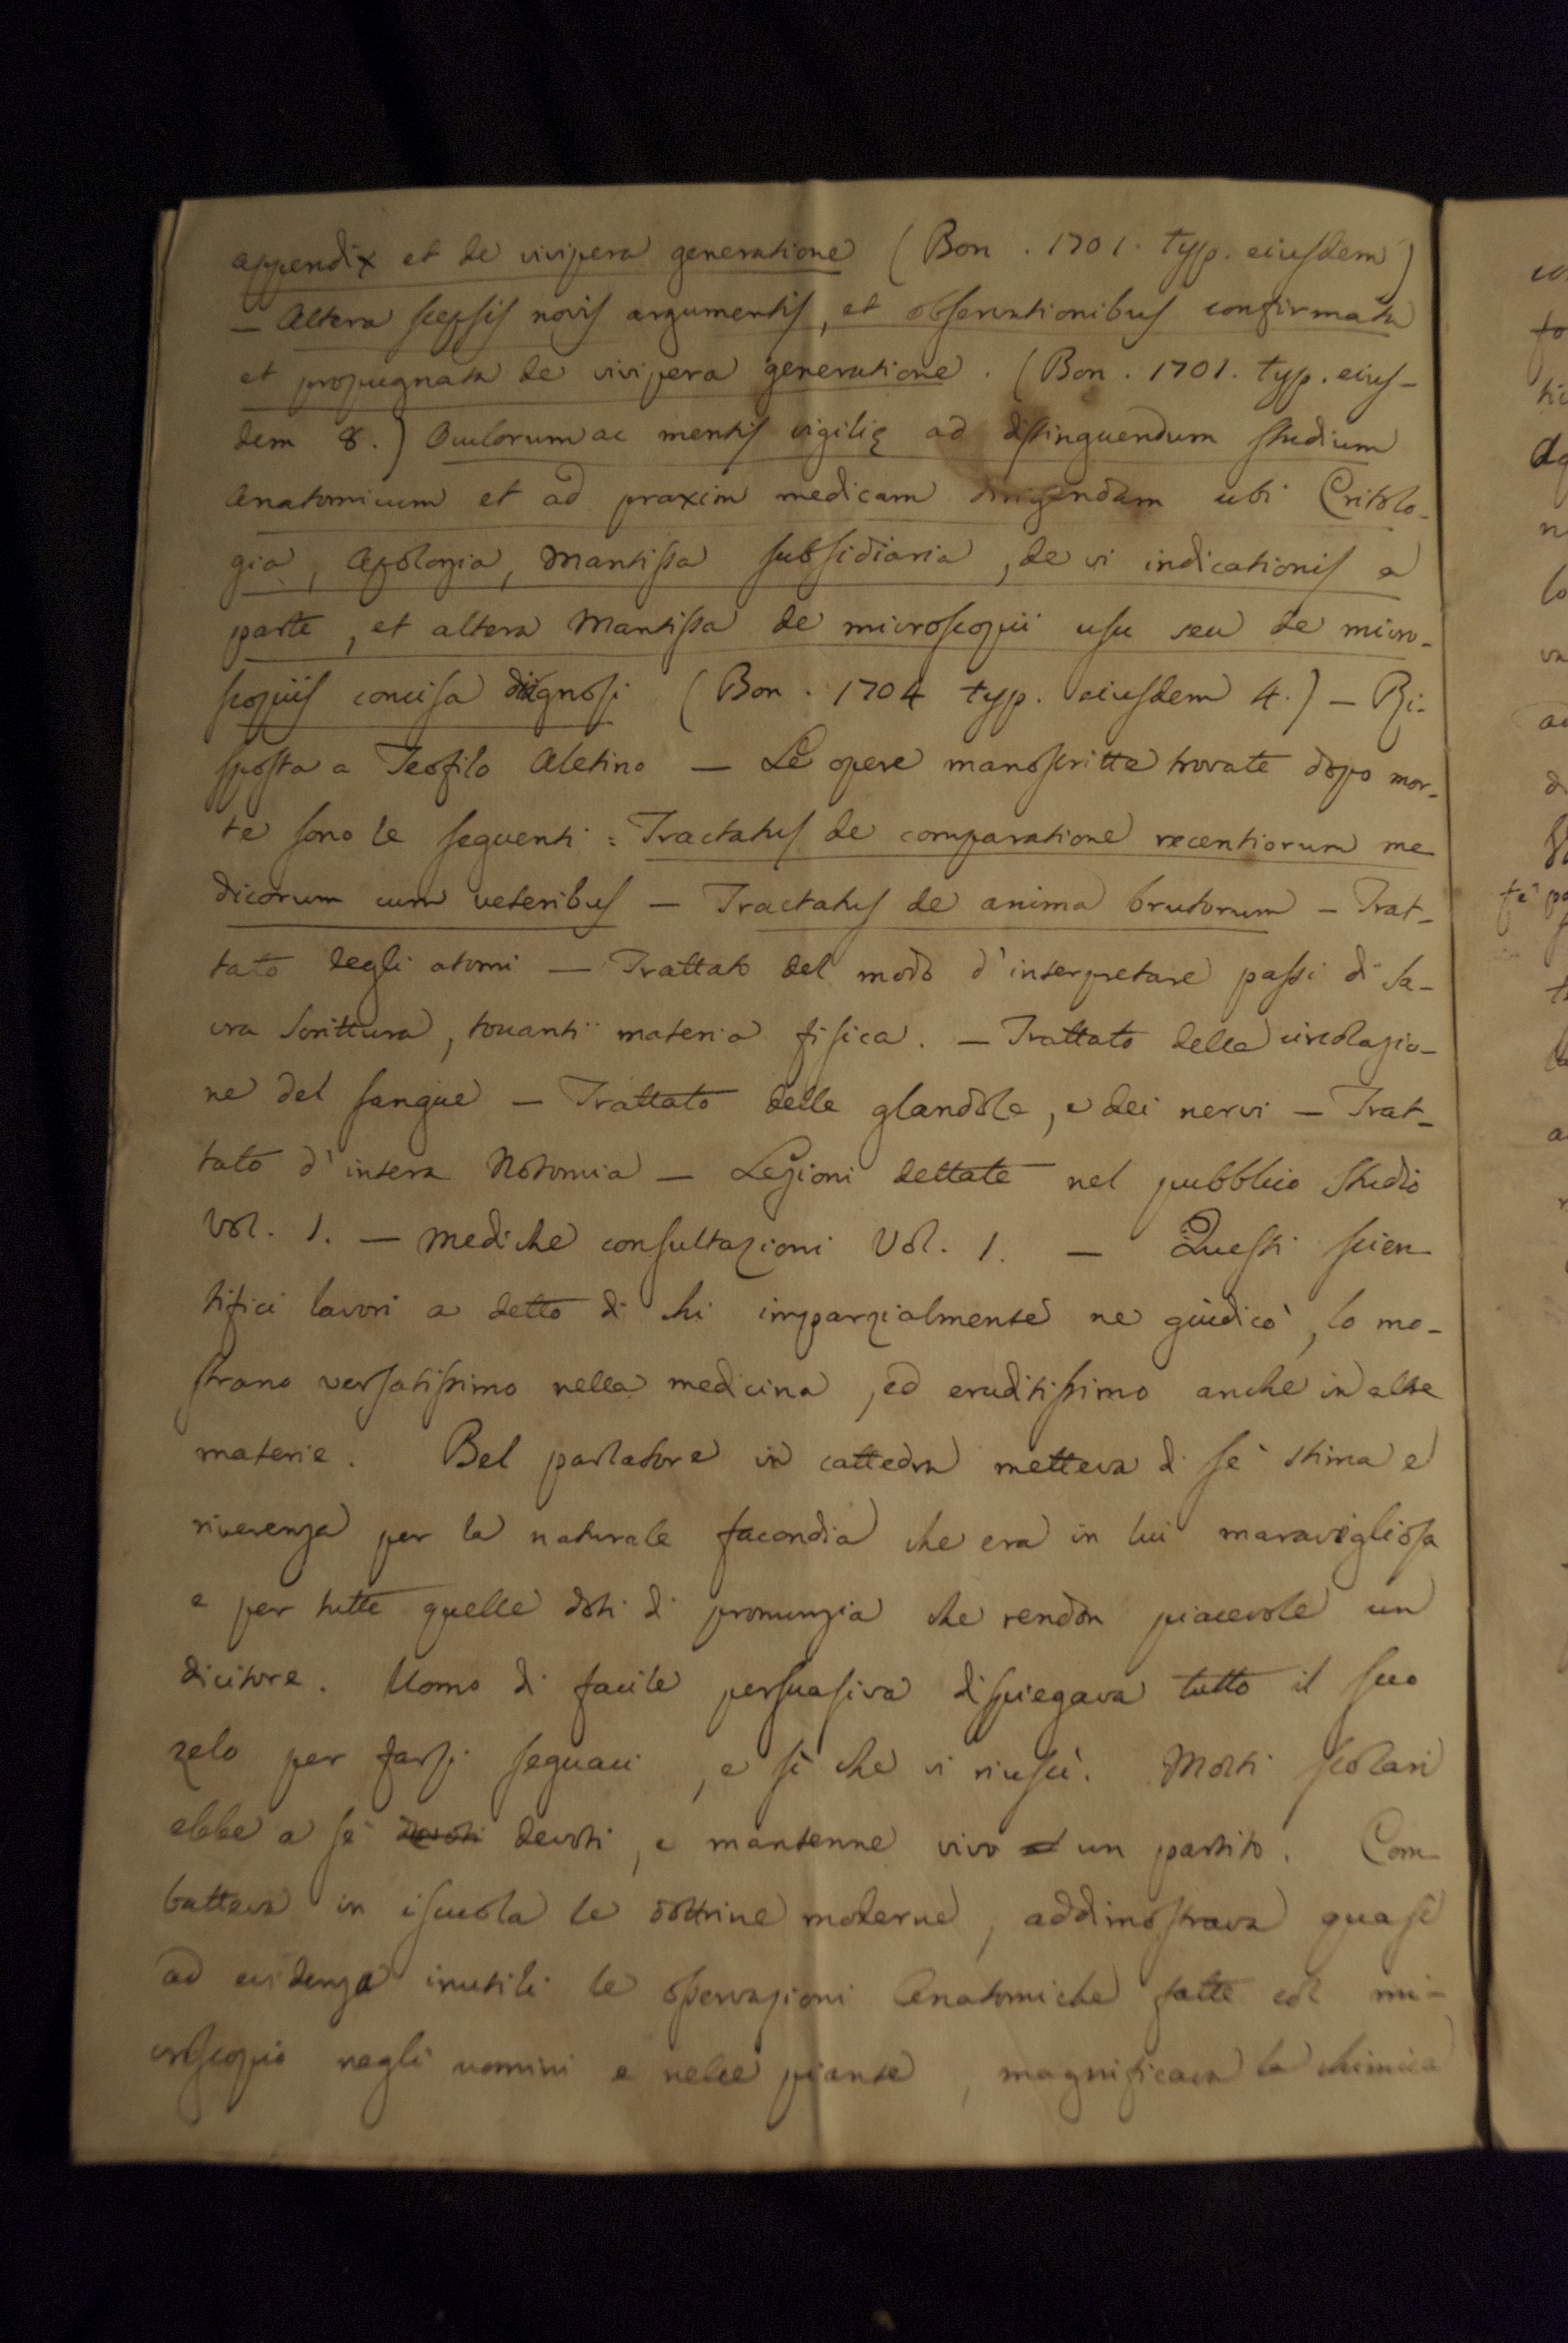 appendix et de vivipera generatione (Bon. 1701. typ. eiusdem)
— Altera scepsis novis argumentis, et observationibus confirmata
et propugnata de vivipera generatione. (Bon. 1701. typ. eius-
dem 8.) Oculorum ac mentis vigilię ad distinguendum studium
Anatomicum et ad praxim medicam dirigendam ubi Critolo-
gia, Apologia, Mantissa subsidiaria, de vi indicationis a
parte, et altera Mantissa de microscopii usu seu de micro-
scopiis concisa diagnosi (Bon. 1704 typ. eiusdem 4.) — Ri-
sposta a Teofilo Aletino — Le opere manoscritte trovate dopo mor-
te sono le seguenti: Tractatus de comparatione recentiorum me
dicorum cum veteribus — Tractatus de anima brutorum — Trat-
tato degli atomi — Trattato del modo d'interpretare passi di Sa-
cra Scrittura, toccanti materia fisica. — Trattato della circolazio-
ne del sangue — Trattato delle glandole, e dei nervi — Trat-
tato d'intera Notomia — Lezioni dettate nel pubblico Studio
Vol. 1. — Mediche consultazioni Vol. 1. — Questi scien
tifici lavori a detto di chi imparzialmente ne giudicò, lo mo-
strano versatissimo nella medicina, ed eruditissimo anche in altre
materie. Bel parlatore in cattedra metteva di sè stima e
riverenza per la naturale facondia che era in lui maravigliosa
e per tutte quelle doti di pronunzia che rendon piacevole un
dicitore. Uomo di facile persuasiva dispiegava tutto il suo
zelo per farsi seguaci, e sì che vi riuscì. Molti scolari
ebbe a sè devoti, e mantenne vivo un partito. Com
batteva in iscuola le dottrine moderne, addimostrava quasi
ad evidenza inutili le osservazioni Anatomiche fatte col mi-
croscopio negli uomini e nelle piante, magnificava la chimica